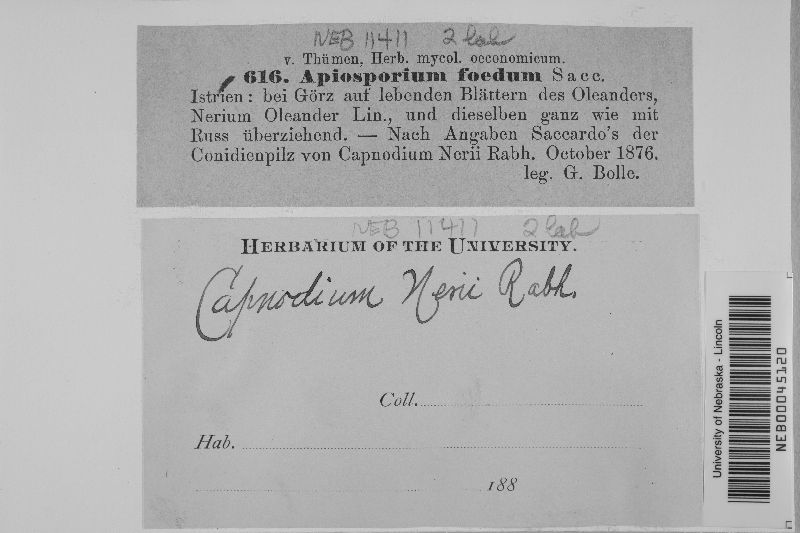 NEB 11411 2 lab
v. Thümen, Herb. mycol. oeconomicum.
616. Apiosporium foedum Sacc.
Istrien: bei Görz auf lebenden Blättern des Oleanders,
Nerium Oleander Lin., und dieselben ganz wie mit
Russ überziehend. — Nach Angaben Saccardo's der
Conidienpilz von Capnodium Nerii Rabh. October 1876.
leg. G. Bolle.
NEB 11411 2 lab
HERBARIUM OF THE UNIVERSITY.
Capnodium Nerii Rabh.
Coll.
Hab.
188
University of Nebraska - Lincoln
NEB00045120